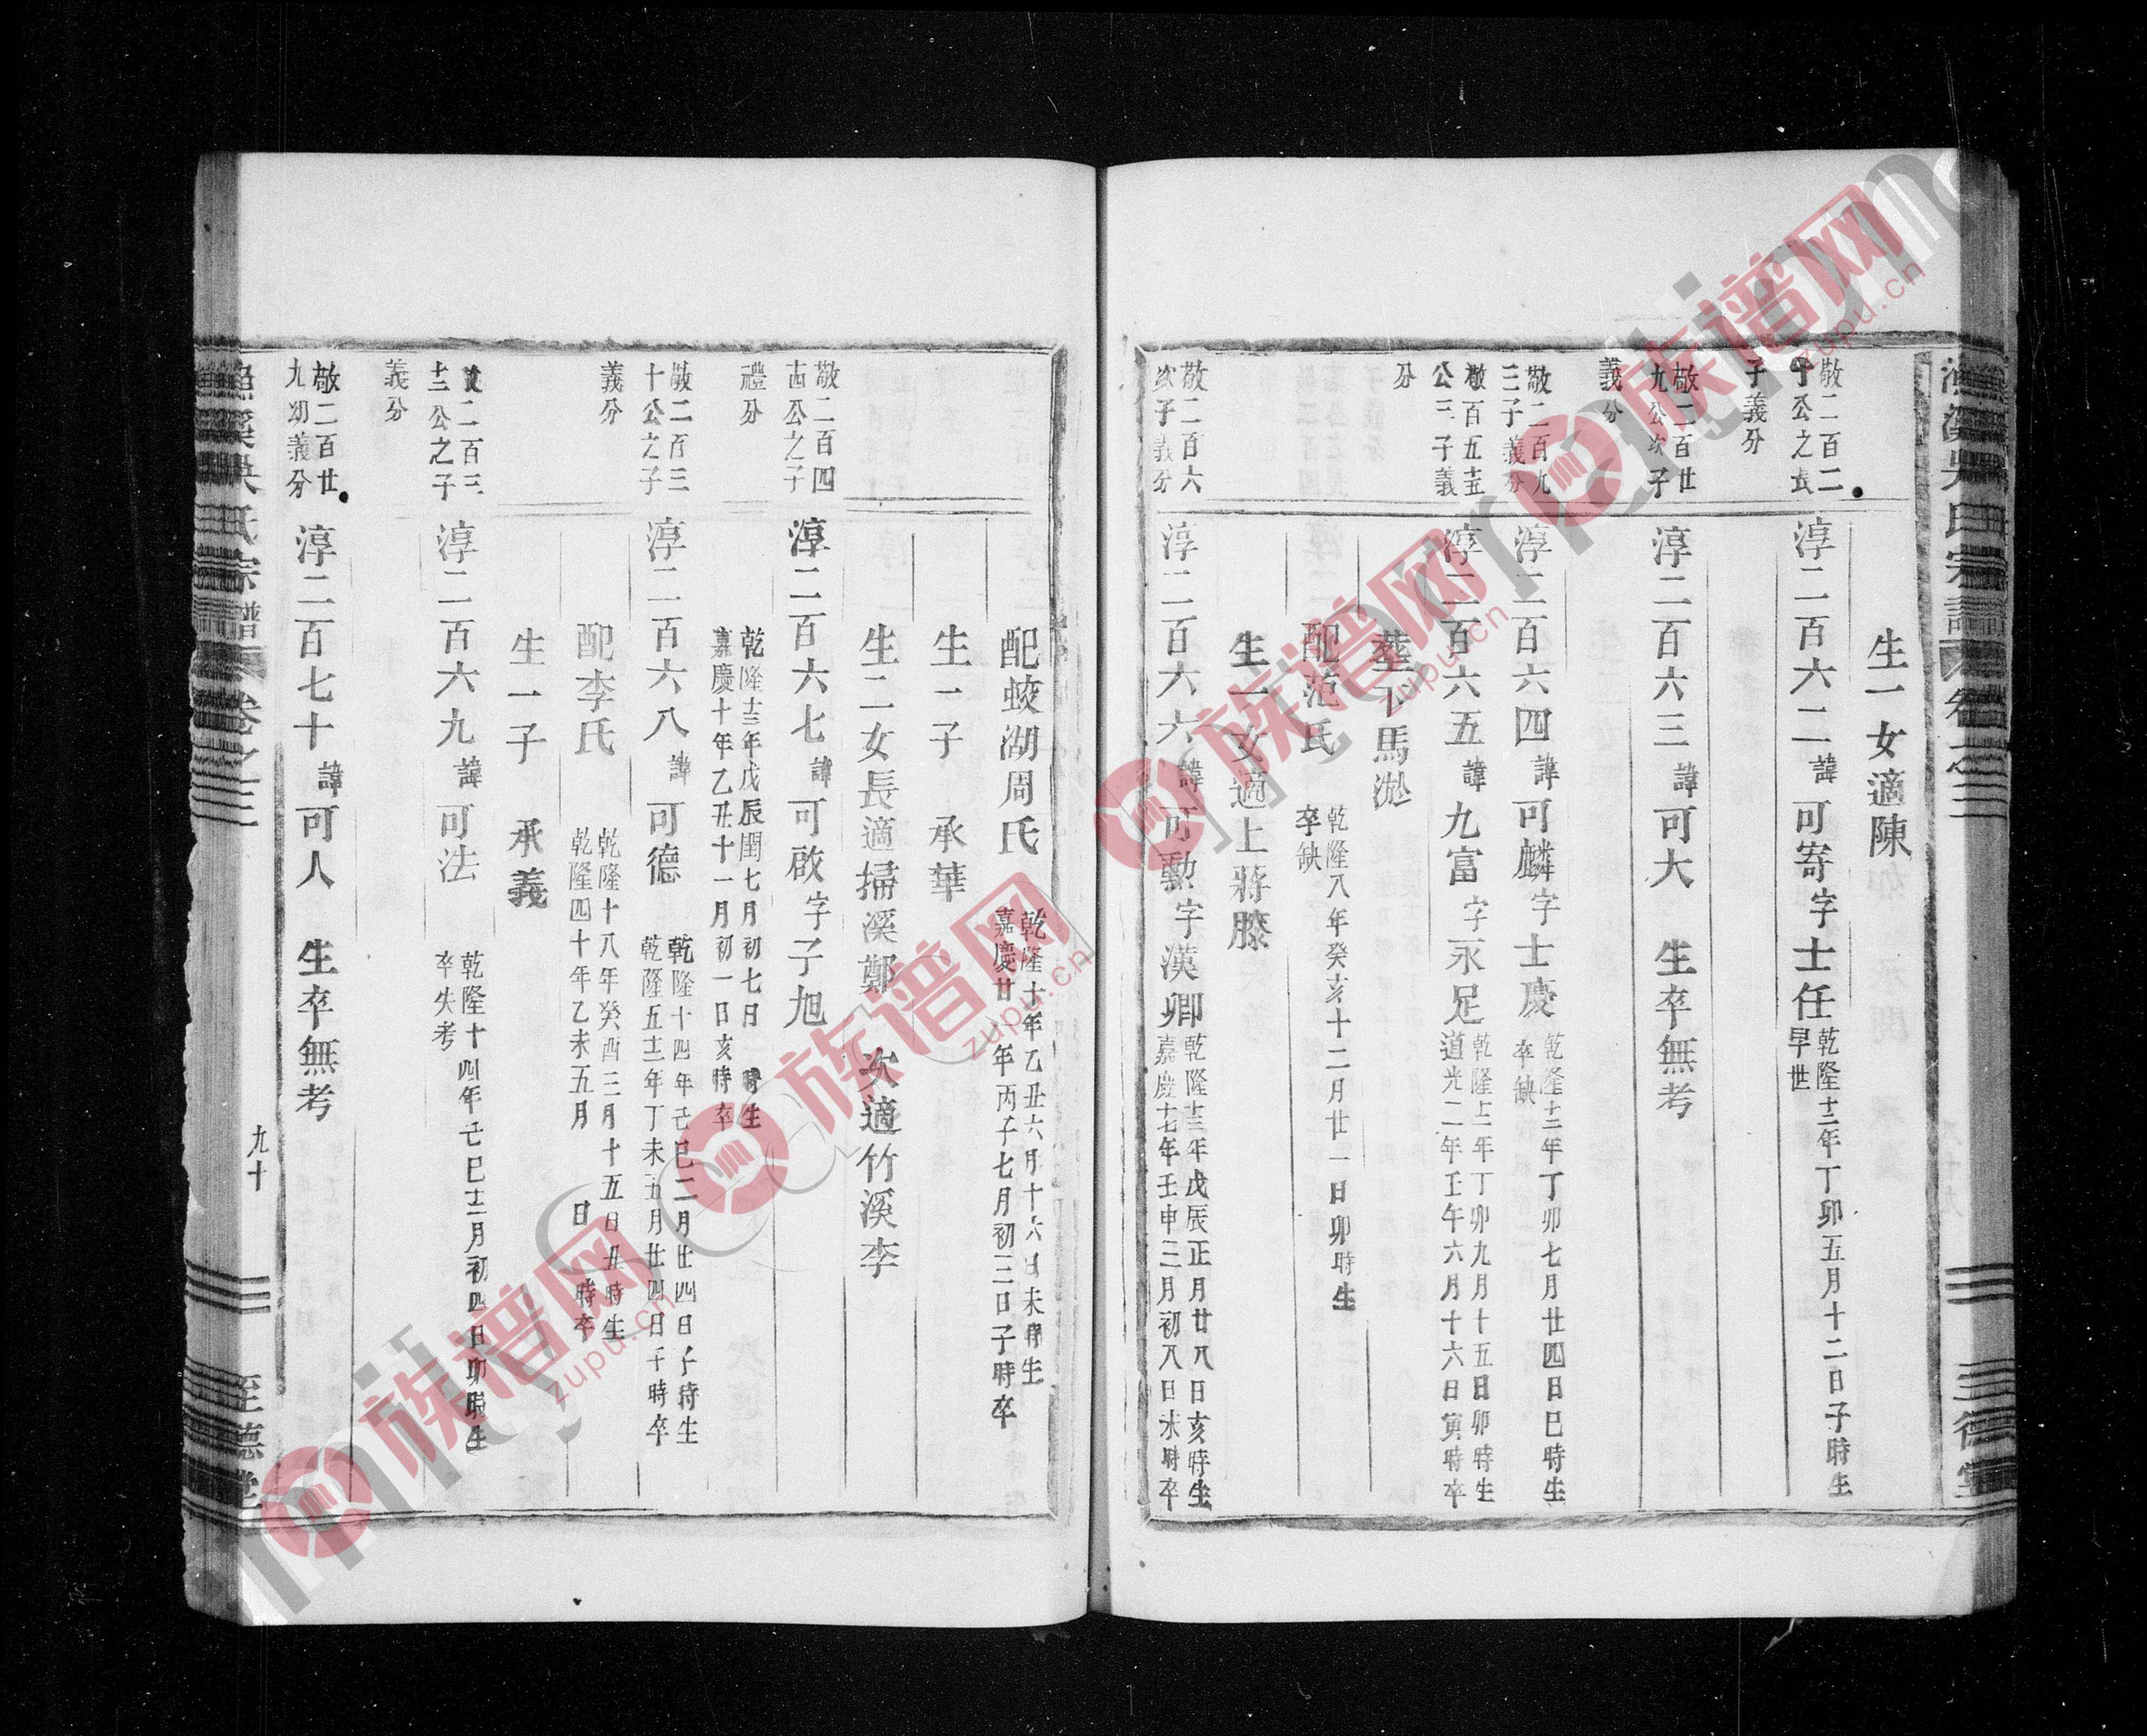 生一女適陳
敬二百二
十公之長
子義分
淳二百六二諱可寄字士任
乾隆十二年丁卯五月十二日子時生
早世
敬二百廿
九公次子
義分
淳二百六三諱可大 生卒無考
敬二百九
三子義分
淳二百六四諱可麟字士慶
乾隆十二年丁卯七月廿四日巳時生
卒缺
敬百五十五
公三子義
分
淳二百六五諱九富字永足
乾隆十二年丁卯九月十五日卯時生
道光二年壬午六月十六日寅時卒
葬下馬
配范氏
乾隆八年癸亥十二月廿一日卯時生
卒缺
生一女適上蔣滕
敬二百六
次子義分
淳二百六六諱可勳字漢卿
乾隆十三年戊辰正月廿八日亥時生
嘉慶十七年壬申三月初八日未時卒
配蛟湖周氏
乾隆十年乙丑六月十六日未時生
嘉慶廿一年丙子七月初三日子時卒
生一子 承華
生二女長適掃溪鄭 次適竹溪李
敬二百四
十四公之子
禮分
淳二百六七諱可啟字子旭
乾隆十三年戊辰閏七月初七日 時生
嘉慶十年乙丑十一月初一日亥時卒
敬二百三
十公之子
義分
淳二百六八諱可德
乾隆十四年己巳二月廿四日子時生
乾隆五十二年丁未五月廿四日午時卒
配李氏
乾隆十八年癸酉三月十五日丑時生
乾隆四十年乙未五月 日 時卒
生一子 承義
敬二百三
十二公之子
義分
淳二百六九諱可法
乾隆十四年己巳十二月初四日卯時生
卒失考
敬二百廿
九幼義分
淳二百七十諱可人 生卒無考
漁溪吳氏宗譜 卷之三 九十 至德堂
族谱网
zupu.cn